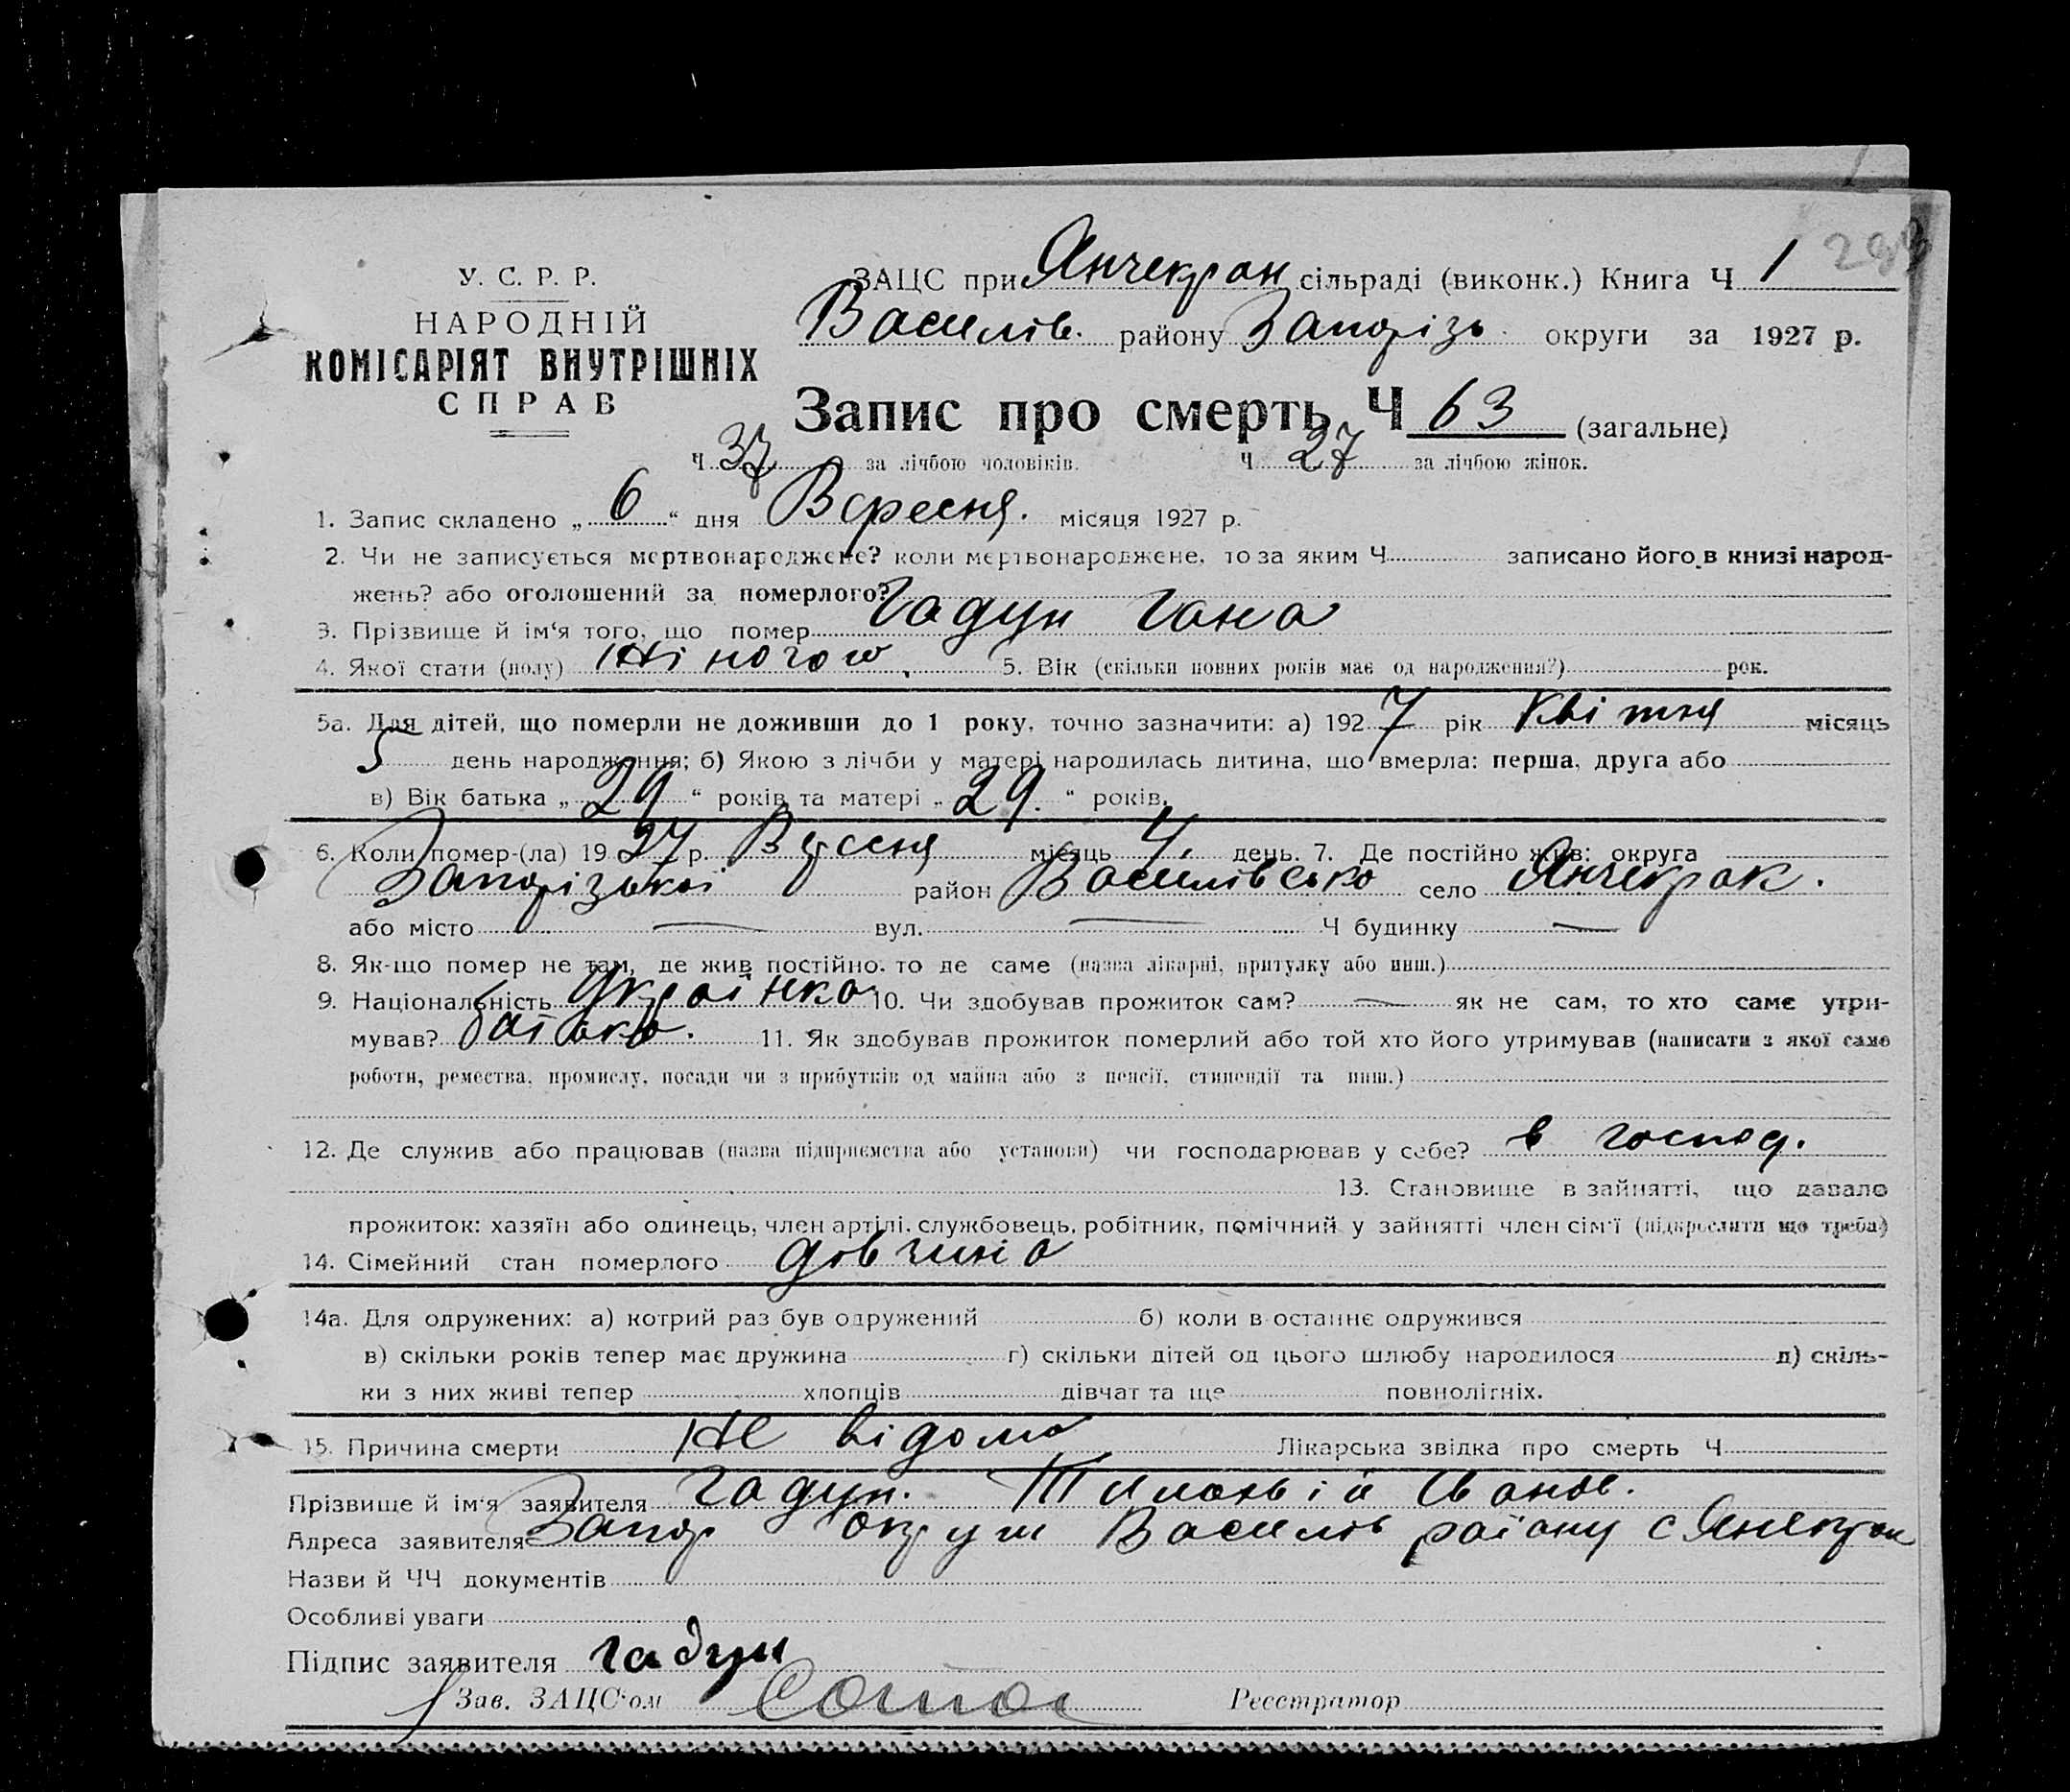 283
У. С. Р. Р.
НАРОДНІЙ
КОМІСАРІЯТ ВНУТРІШНІХ
СПРАВ
ЗАЦС при Янчекрак сільраді (виконк.) Книга Ч 1
Василів. району Запорізь округи за 1927 р.
Запис про смерть Ч 63 (загальне)
Ч 37 за лічбою чоловіків. Ч 27 за лічбою жінок.
1. Запис складено „ 6 “ дня Вересня. місяця 1927 р.
2. Чи не записується мертвонароджене? коли мертвонароджене, то за яким Ч записано його в книзі народ-
жень? або оголошений за померлого?
3. Прізвище й ім'я того, що помер Гадун Гана
4. Якої стати (полу) Жіночого 5. Вік (скільки повних років має од народження?) рок.
5а. Для дітей, що померли не доживши до 1 року, точно зазначити: а) 1927 рік Квітня місяць
5 день народження; б) Якою з лічби у матері народилась дитина, що вмерла: перша, друга або
в) Вік батька „ 29 “ років та матері „ 29. “ років.
6. Коли помер-(ла) 1927 р. Вресня місяць 4. день. 7. Де постійно жив: округа
Запорізької район Василівсько село Янчекрак.
або місто — вул. — Ч будинку —
8. Як-що помер не там, де жив постійно. то де саме (назва лікарні, притулку або инш.)
9. Національність Українка 10. Чи здобував прожиток сам? — як не сам, то хто саме утри-
мував? батько. 11. Як здобував прожиток померлий або той хто його утримував (написати з якої саме
роботи, ремества, промислу, посади чи з прибутків од майна або з пенсії, стипендії та инш.)
12. Де служив або працював (назва підприємства або установи) чи господарював у себе? в господ.
13. Становище в зайнятті, що давало
прожиток: хазяїн або одинець, член артілі. службовець, робітник, помічний у зайнятті член сім'ї (підкреслити що треба)
14. Сімейний стан померлого дівчина
14а. Для одружених: а) котрий раз був одружений б) коли в останнє одружився
в) скільки років тепер має дружина г) скільки дітей од цього шлюбу народилося д) скіль-
ки з них живі тепер хлопців дівчат та ще повнолітніх.
15. Причина смерти Не відома Лікарська звідка про смерть Ч
Прізвище й ім'я заявителя Гадун. Іванов.
Адреса заявителя Запор округи Василів району с Янчекрак
Назви й ЧЧ документів
Особливі уваги
Підпис заявителя Гадун
Зав. ЗАЦС'ом
Реєстратор